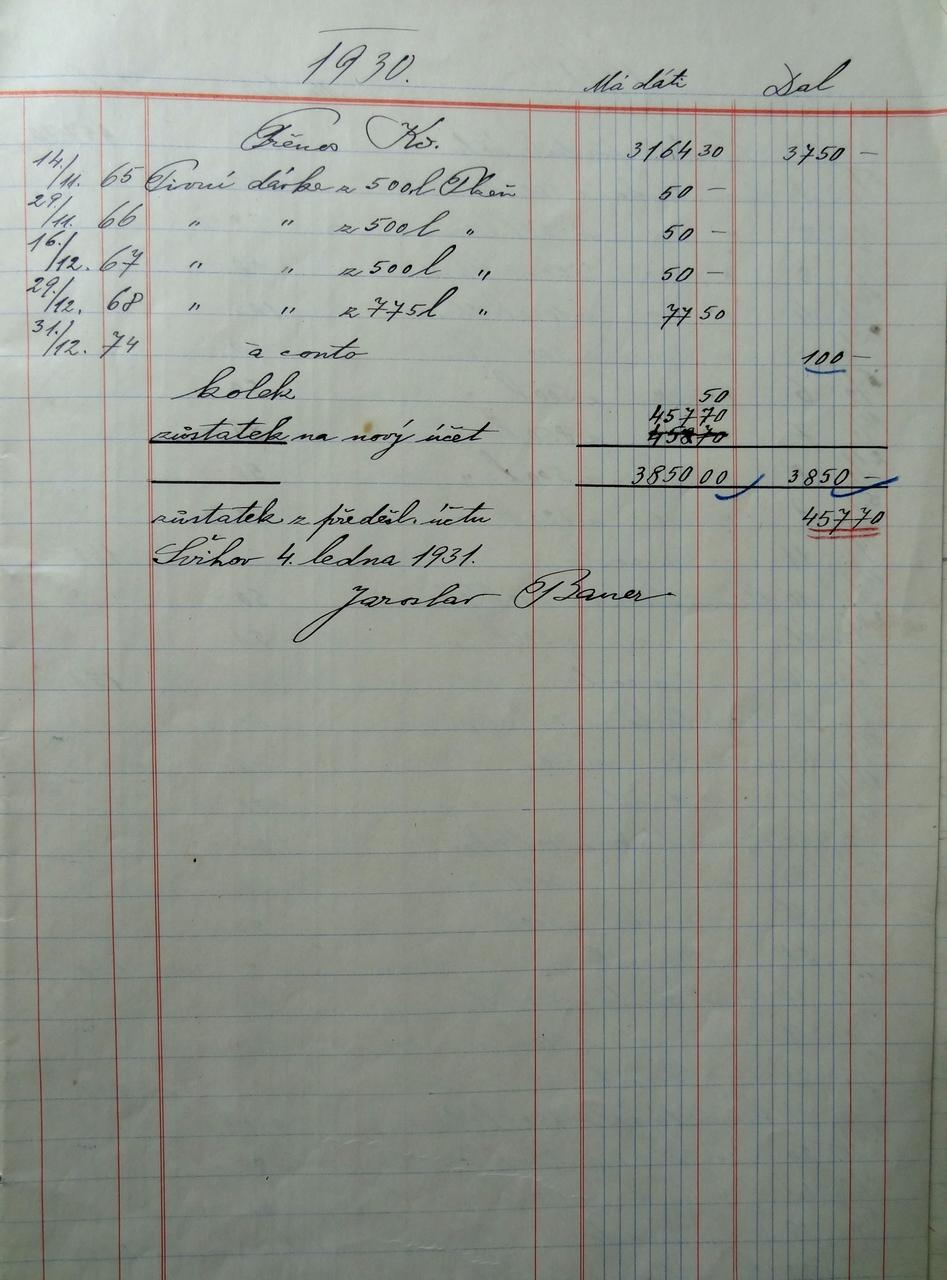 1930.
Má dáti Dal
Přenos Kč. 3164 30 3750 —
14./11. 65 Pivní dávka z 500 l Plzeň 50 —
29./11. 66 " " z 500 l " 50 —
16./12. 67 " " z 500 l " 50 —
29./12. 68 " " z 775 l " 77 50
31./12. 74 à conto 100 —
kolek 50
457 70
zůstatek na nový účet 458 70
3850 00 3850 —
zůstatek z předešl. účtu 457 70
Švihov 4. ledna 1931.
Jaroslav Bauer